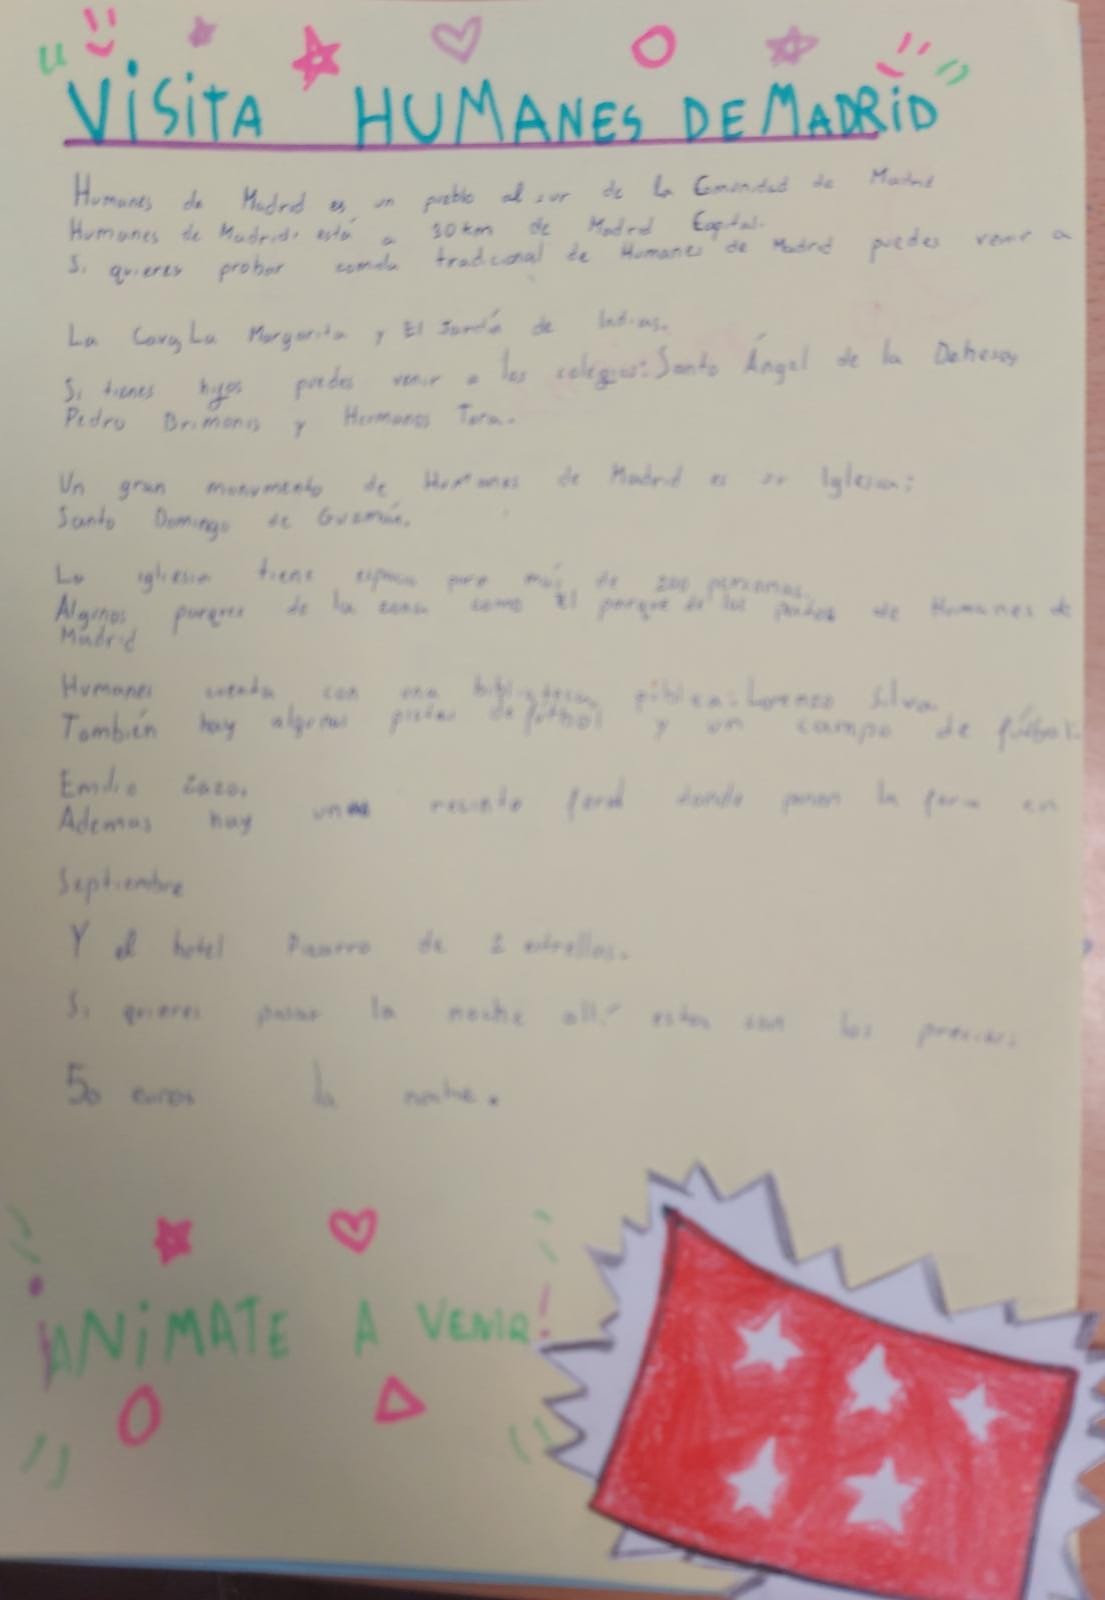 VISITA HUMANES DE MADRID
Humanes de Madrid es un pueblo al sur de la Comunidad de Madrid
Humanes de Madrid está a 30 km de Madrid Capital.
Si quieres probar comida tradicional de Humanes de Madrid puedes venir a
La Cava, La Margarita y El Jardín de Indias.
Si tienes hijos puedes venir a los colegios: Santo Ángel de la Dehesa,
Pedro Brimonis y Hermanos Tora.
Un gran monumento de Humanes de Madrid es su Iglesia:
Santo Domingo de Guzmán.
La iglesia tiene espacio para más de 200 personas.
Algunos parques de la zona como El parque de los de Humanes de
Madrid
Humanes cuenta con una biblioteca pública: Lorenzo Silva
También hay algunas pistas de fútbol y un campo de fútbol:
Emilio Zazo.
Ademas hay un recinto ferial donde ponen la feria en
Septiembre
Y el hotel Pizarro de 2 estrellas.
Si quieres pasar la noche allí estos son los precios:
50 euros la noche.
¡ANÍMATE A VENIR!